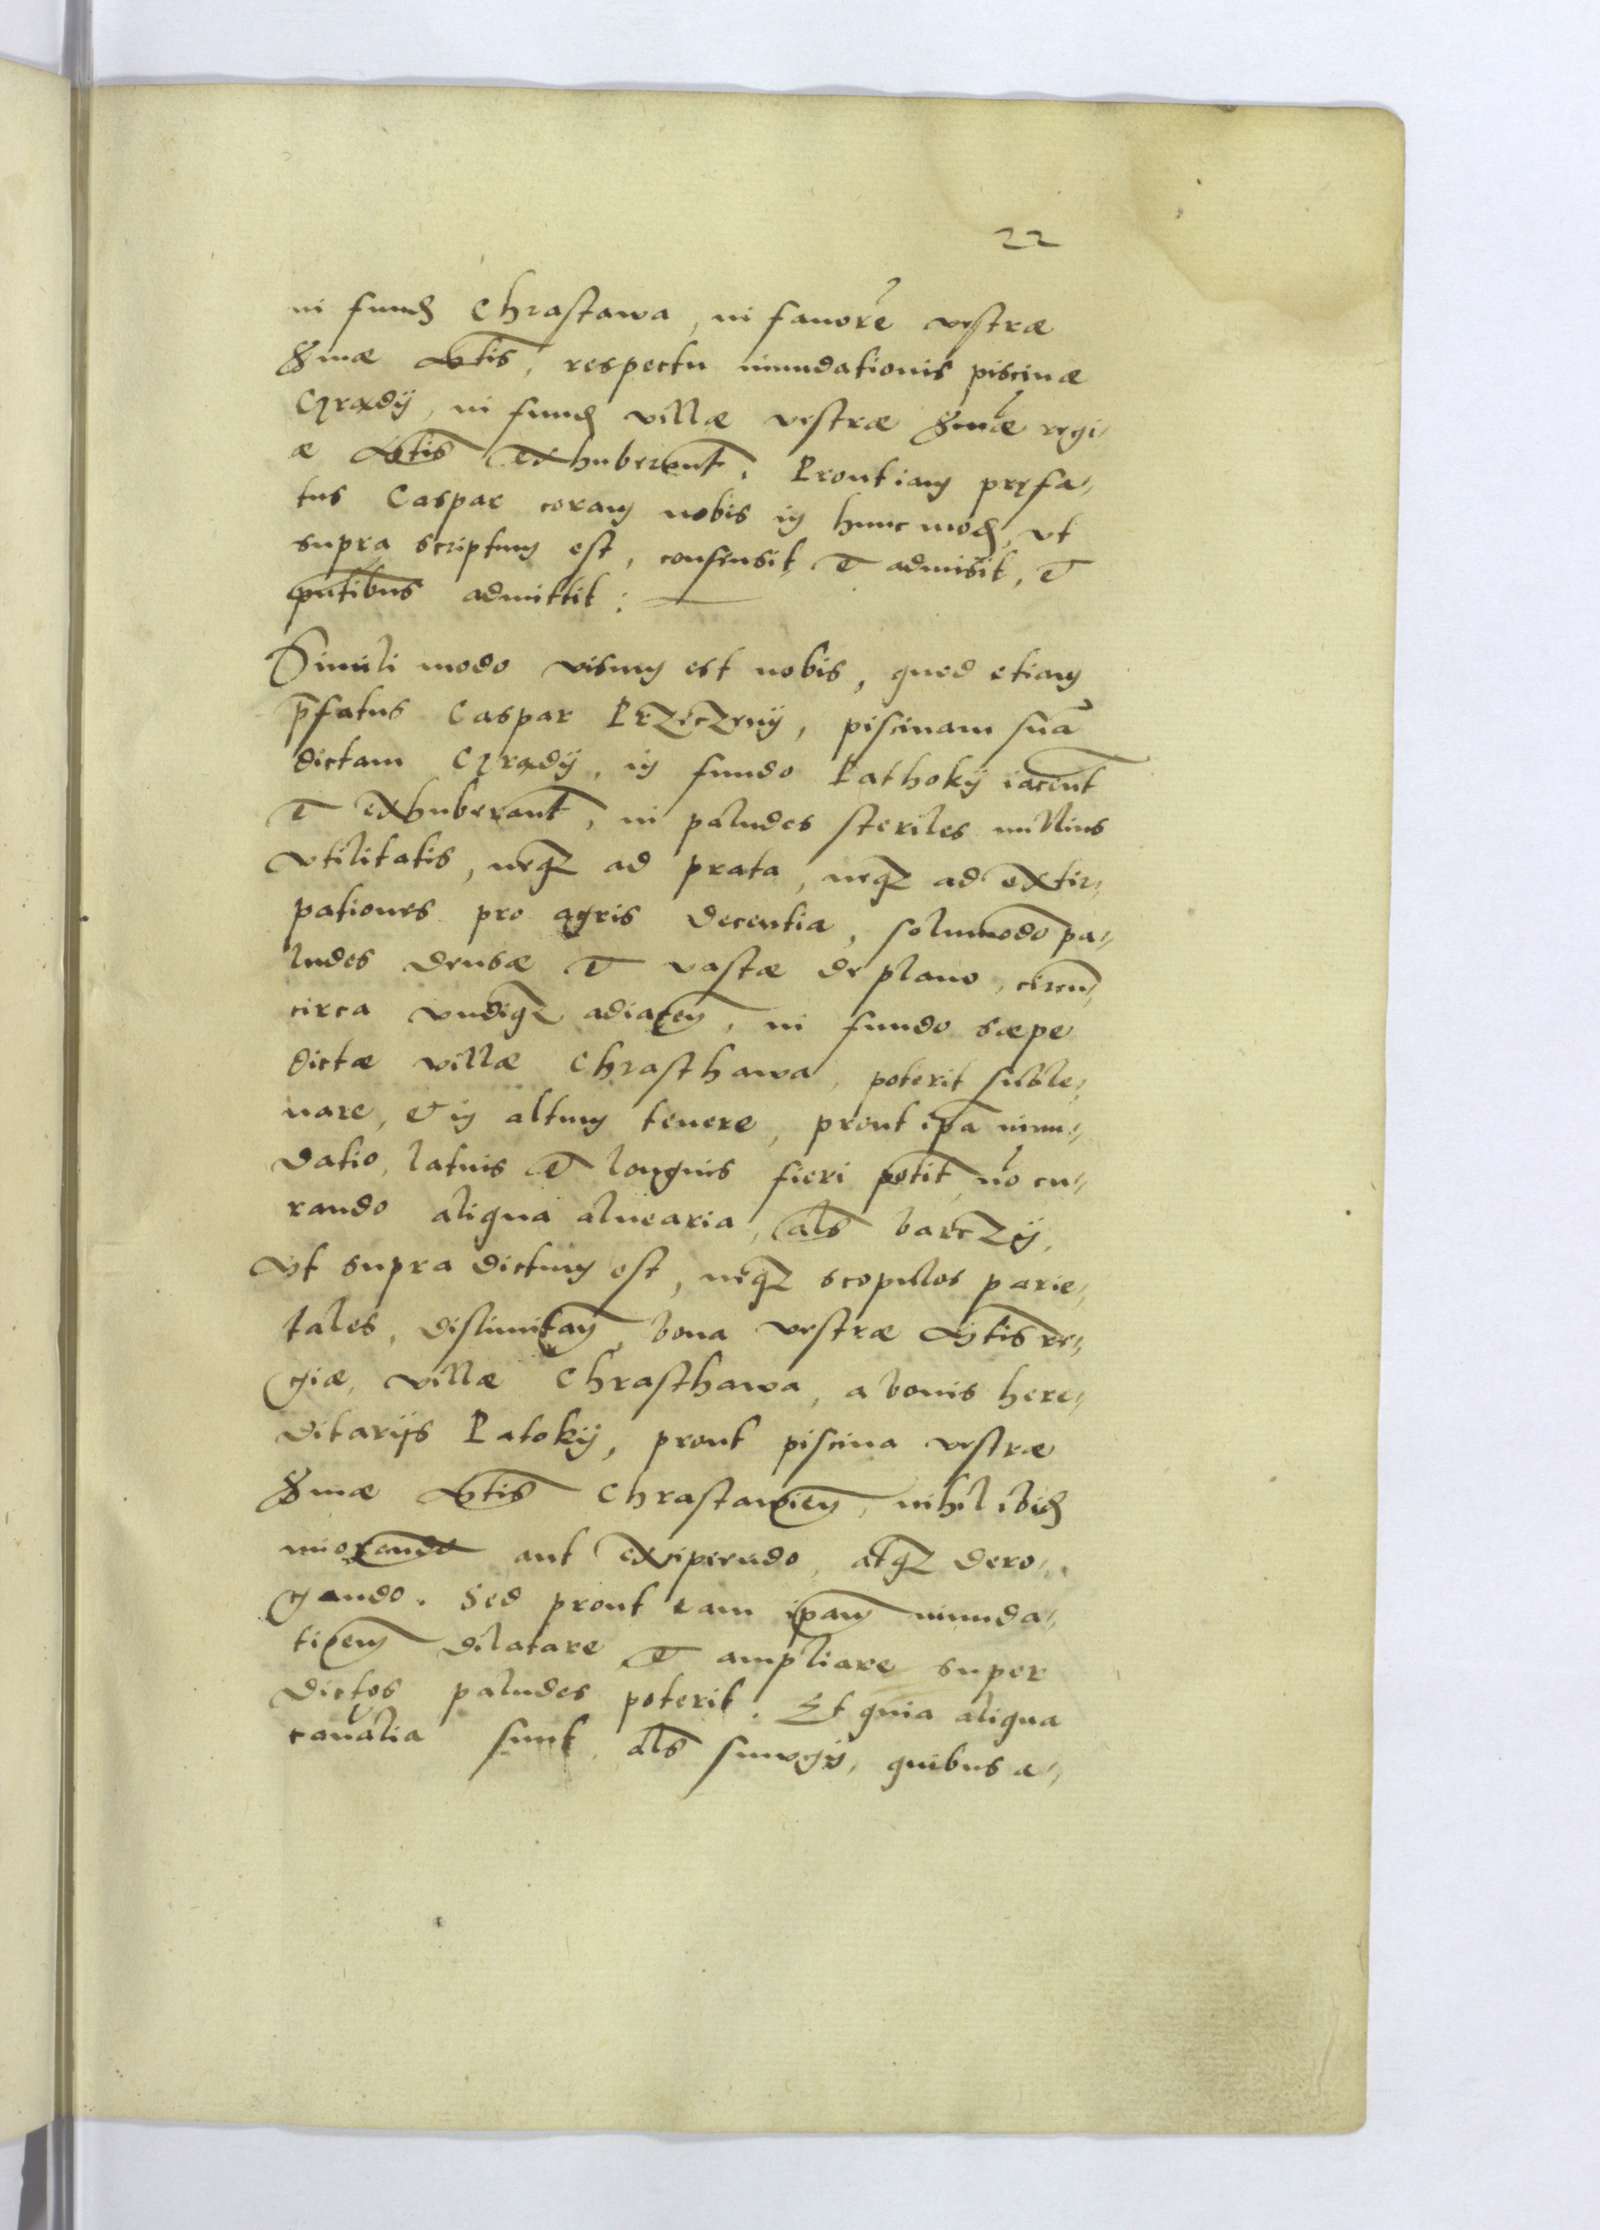 22
in fund Chrastawa, in fauorē vestræ
Smæ Mtis, respectu inundationis piscinæ
Czradÿ, in fund villæ vestræ Smæ regi-
æ Mtis exhuberant. Prout iam præfa-
tus Caspar coram nobis in hunc mod, vt
supra scriptum est, consensit et admisit, et
pntibus admittit:
Simili modo visum est nobis, quod etiam
pfatus Caspar Przeczenÿ, piscinam suā
dictam Czradÿ, in fundo Pathokÿ iacent
et exhuberant, in paludes steriles nullius
vtilitatis, neqz ad prata, neqz ad extir-
pationes pro agris decentia, solummodo pa-
ludes densæ et vastæ de plano, circum-
circa vndiqz adiacen, in fundo sæpe
dictæ villæ Chrasthawa, poterit suble-
uare, et in altum tenere, prout ipa inun-
datio, latius et longius fieri potit, no cu-
rando aliqua aluearia, als barczÿ,
Vt supra dictum est, neqz scopulos parie-
tales, dislimitan, bona vestræ Mtis re-
giæ, villæ Chrasthawa, a bonis here-
ditarijs Patokÿ, prout piscina vestræ
Smæ Mtis Chrastawien, nihil ibid
minorando aut excipiendo, atqz dero-
gando. Sed prout eam ipam inunda-
tioem dilatare et ampliare super
dictos paludes poterit. Et quia aliqua
canalia sunt, als smugÿ, quibus a-